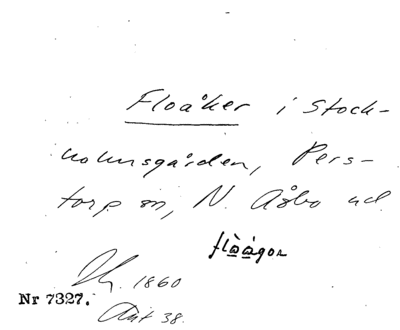 Floåker i Stock-
holmsgården, Pers-
torp sn, N. Åsbo hd
flåågor
1860
Nr 7327.
Ant 38.